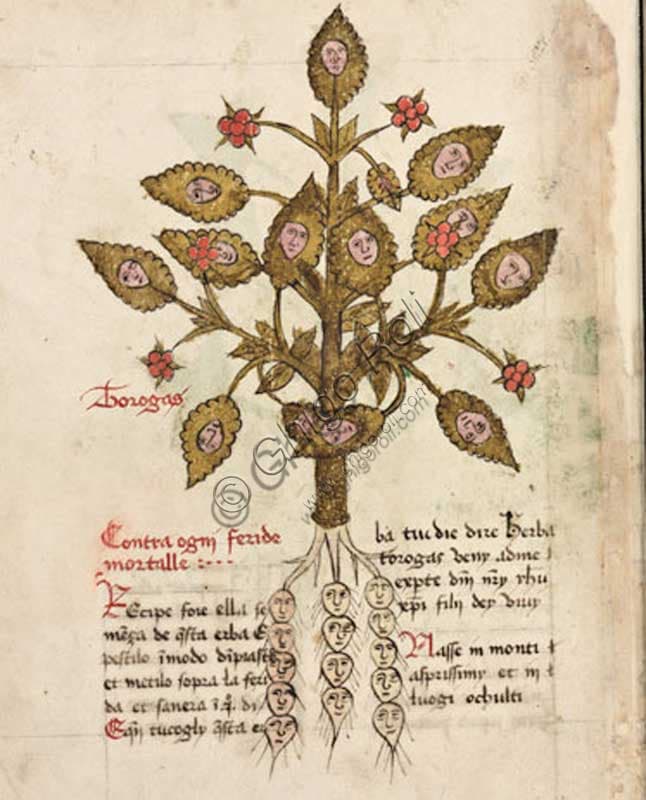 Torogas
Contra ogni feride
mortalle
Recipe foie ella se
mẽza de q̃sta erba e
pestilo ĩmodo dinpiastr
et metilo sopra la feri
da et sanera
E q̃n tucogly q̃sta er
ba tu die dire Herba
torogas veny ad me
expte dñi nr̃y yhu
xp̃i filij dey vivy
Nasse in monti
asprissimy et in
luogi ochulti
© Ghigo Roli
www.ghigoroli.com